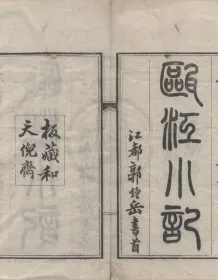 甌江小記
江都郭鍾岳書首
板藏和
天倪齋